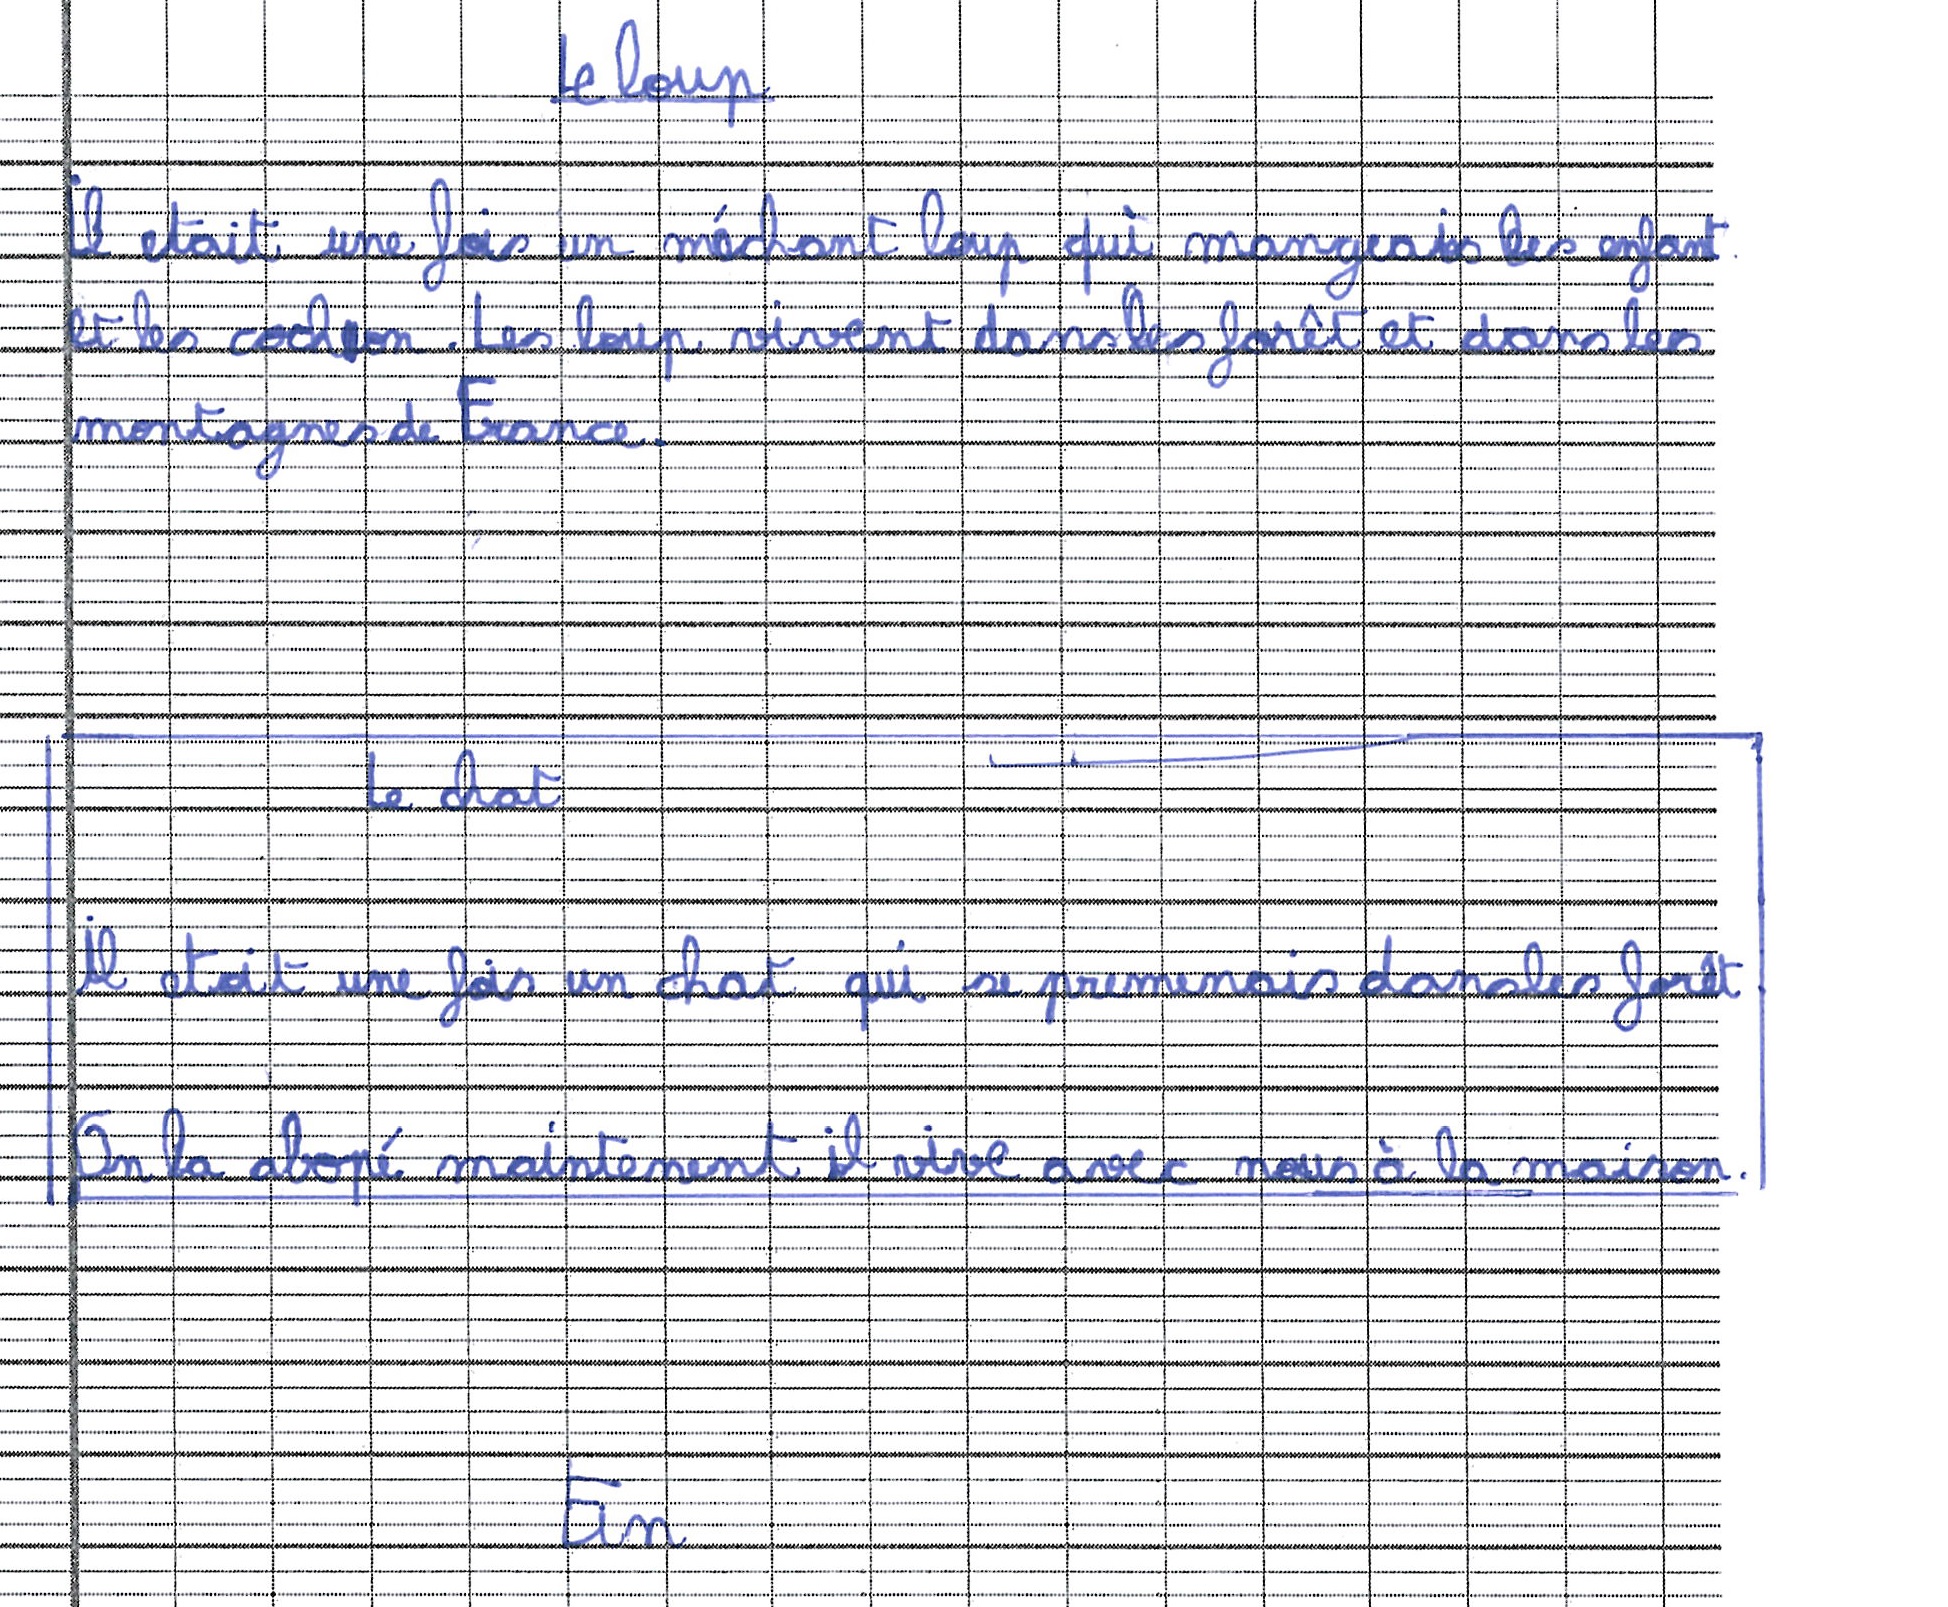 Le loup
il etait une fois un méchant loup qui mangeais les enfant.
et les cochon. Les loup vivent dans les forêt et dans les
montagnes de France.
Le chat
Il etait une fois un chat qui se premenais dans les forêt
On la abopé maintenent il vive avec nous à la maison.
Fin